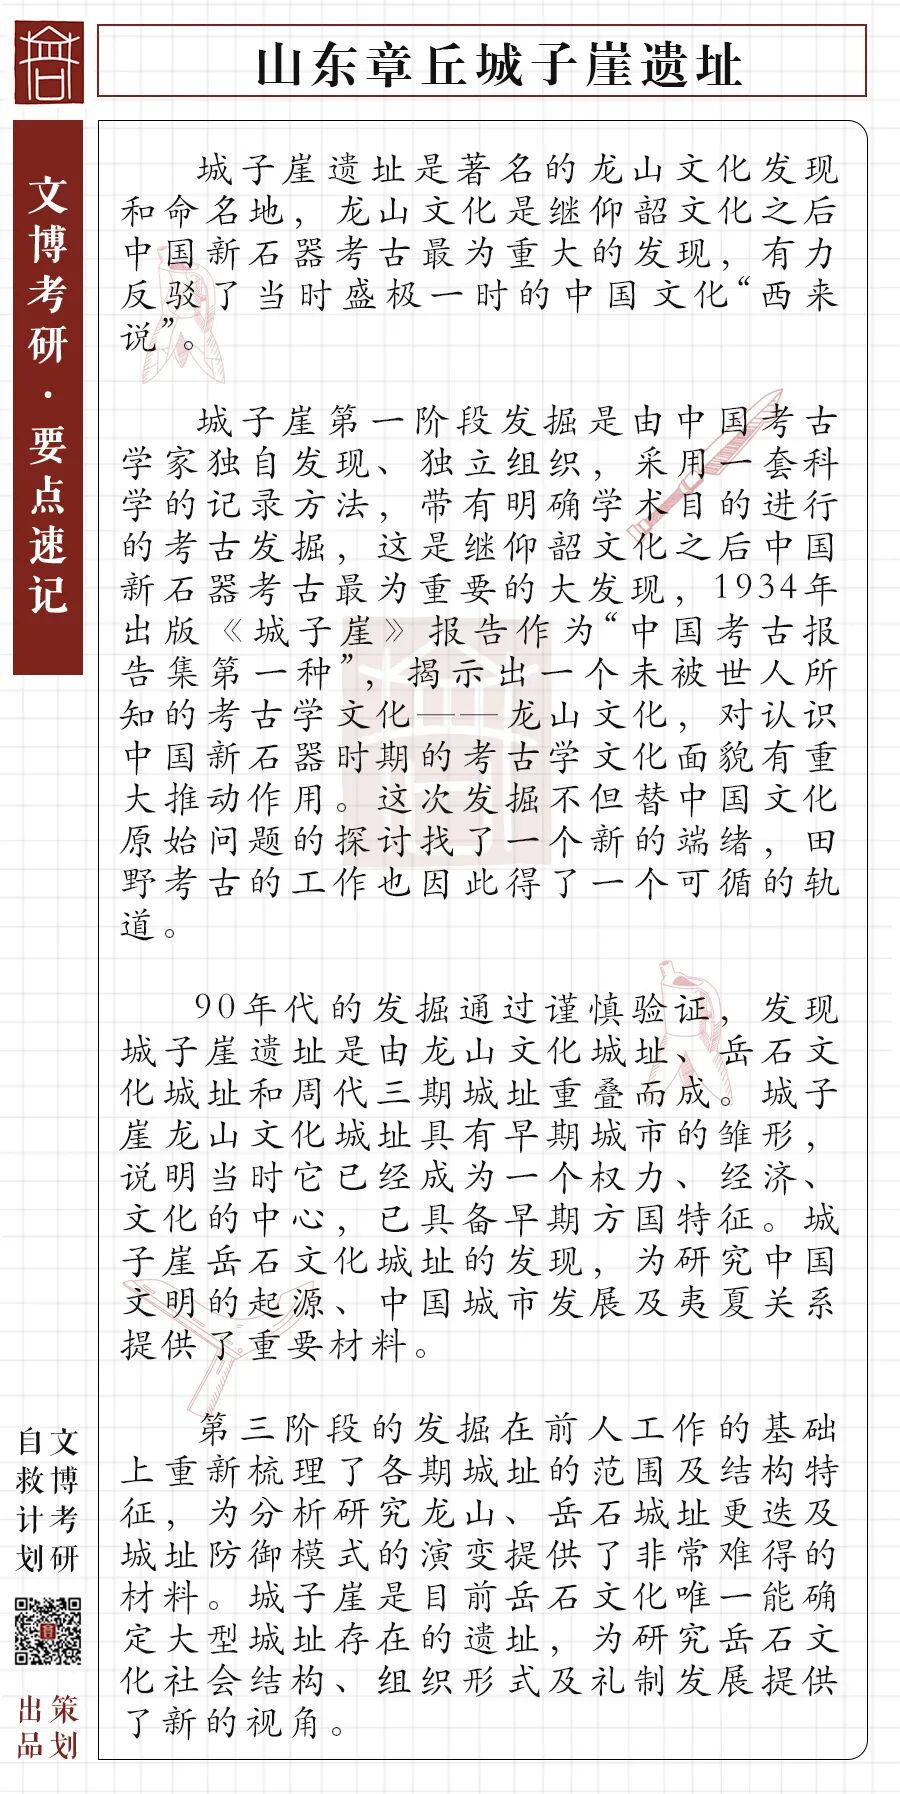 山东章丘城子崖遗址
文博考研·要点速记
城子崖遗址是著名的龙山文化发现
和命名地，龙山文化是继仰韶文化之后
中国新石器考古最为重大的发现，有力
反驳了当时盛极一时的中国文化“西来
说”。
城子崖第一阶段发掘是由中国考古
学家独自发现、独立组织，采用一套科
学的记录方法，带有明确学术目的进行
的考古发掘，这是继仰韶文化之后中国
新石器考古最为重要的大发现，1934年
出版《城子崖》报告作为“中国考古报
告集第一种”，揭示出一个未被世人所
知的考古学文化——龙山文化，对认识
中国新石器时期的考古学文化面貌有重
大推动作用。这次发掘不但替中国文化
原始问题的探讨找了一个新的端绪，田
野考古的工作也因此得了一个可循的轨
道。
90年代的发掘通过谨慎验证，发现
城子崖遗址是由龙山文化城址、岳石文
化城址和周代三期城址重叠而成。城子
崖龙山文化城址具有早期城市的雏形，
说明当时它已经成为一个权力、经济、
文化的中心，已具备早期方国特征。城
子崖岳石文化城址的发现，为研究中国
文明的起源、中国城市发展及夷夏关系
提供了重要材料。
第三阶段的发掘在前人工作的基础
上重新梳理了各期城址的范围及结构特
征，为分析研究龙山、岳石城址更迭及
城址防御模式的演变提供了非常难得的
材料。城子崖是目前岳石文化唯一能确
定大型城址存在的遗址，为研究岳石文
化社会结构、组织形式及礼制发展提供
了新的视角。
文博考研
自救计划
策划
出品